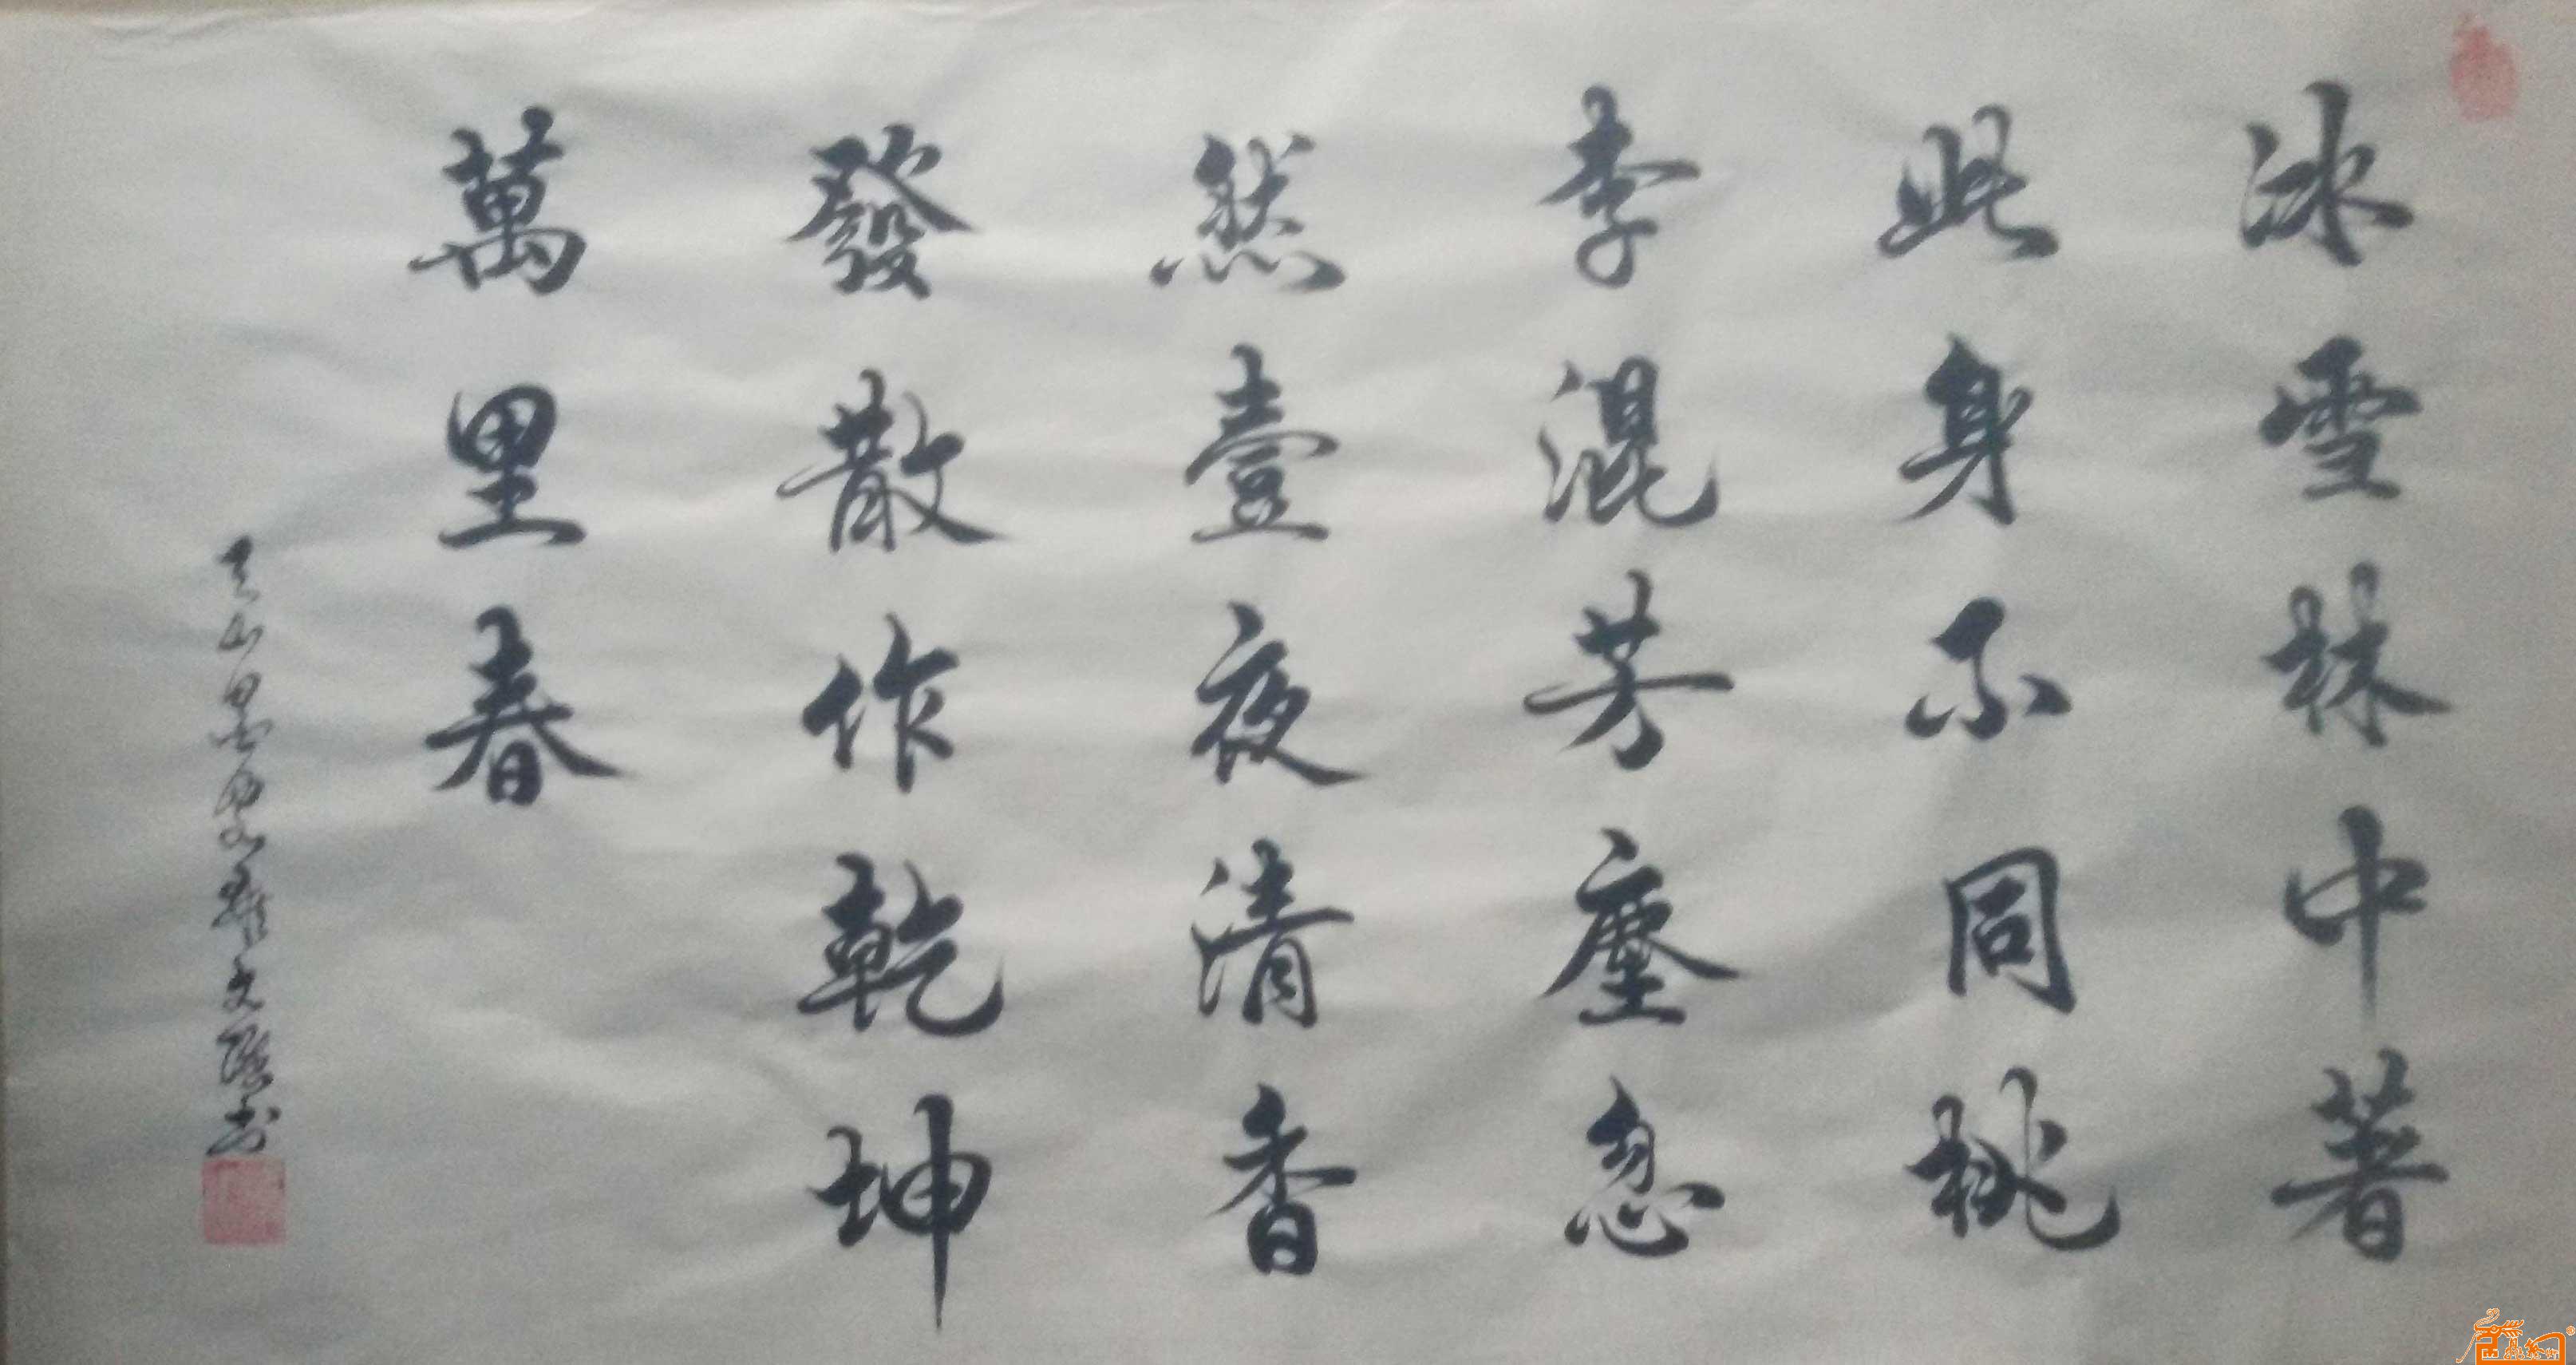 冰雪林中著
此身不同桃
李混芳塵忽
然壹夜清香
發散作乾坤
萬里春